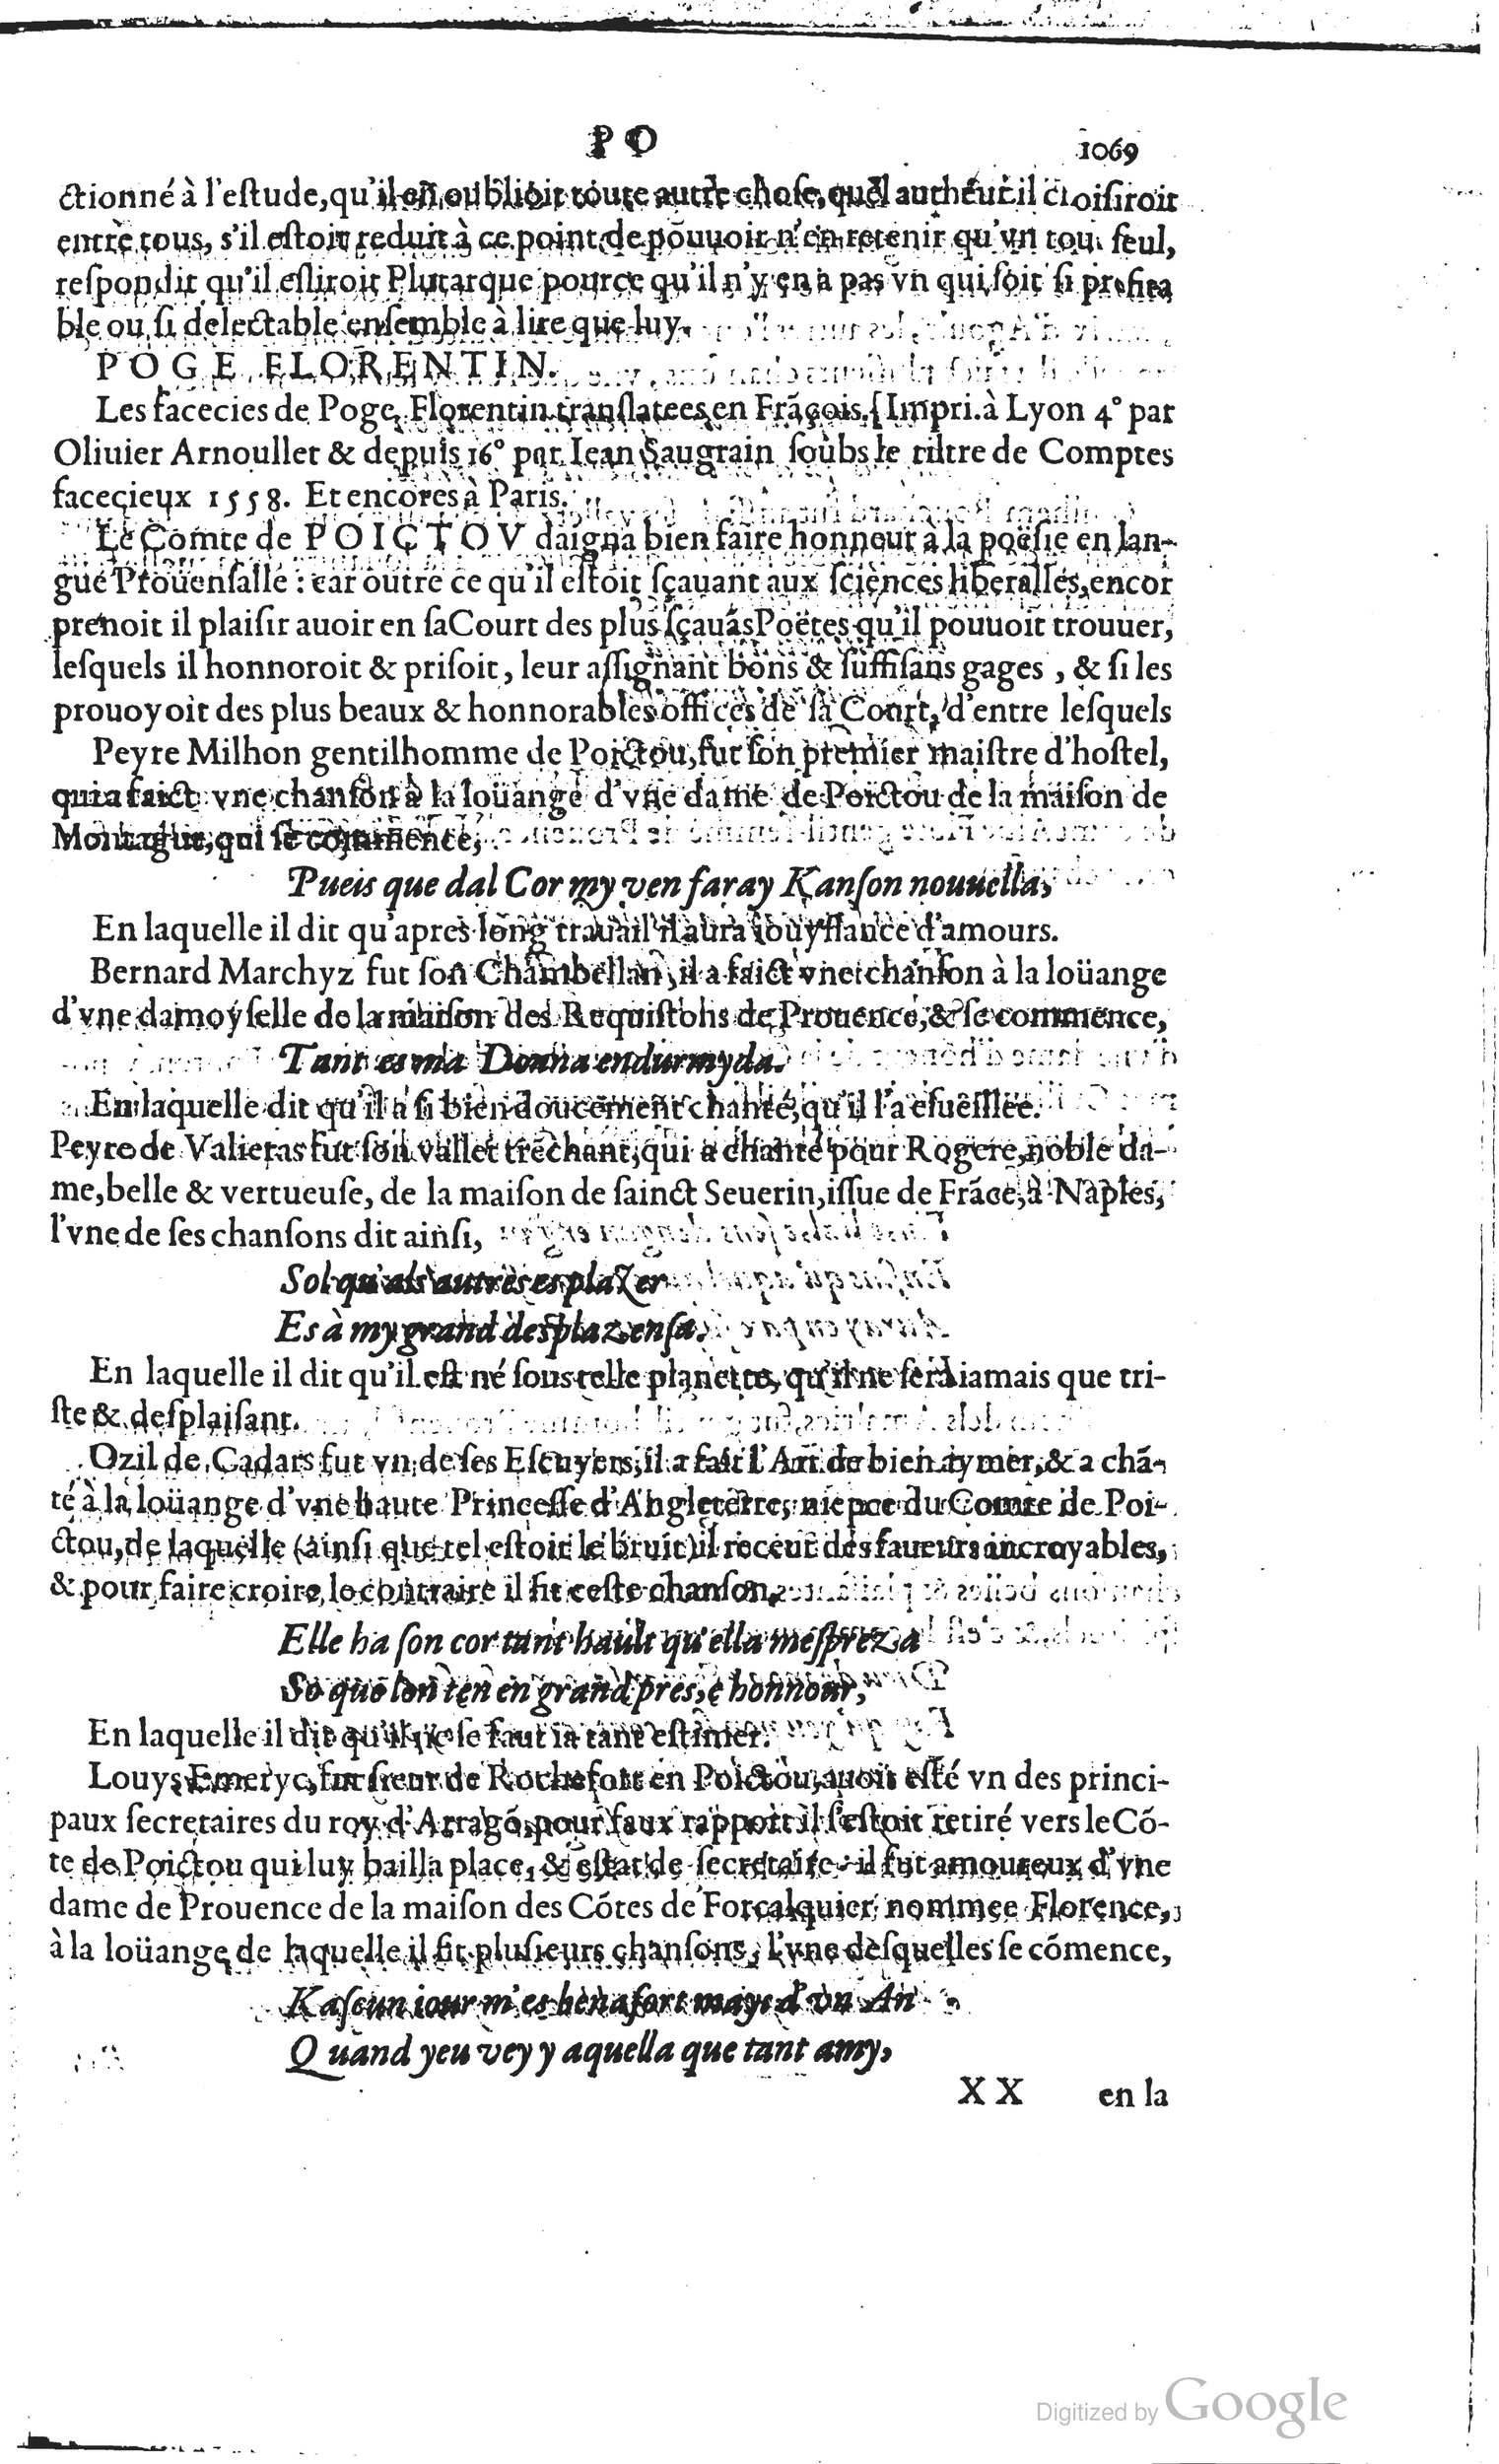 PO 1069
ctionné à l'eſtude, qu'il en oublioit toute autre choſe, quel autheur il choiſiroit
entre tous, s'il eſtoit reduit à ce point de pouuoir n'en retenir qu'vn tout ſeul,
reſpondit qu'il eſliroit Plutarque pource qu'il n'y en a pas vn qui ſoit ſi profita
ble ou ſi delectable enſemble à lire que luy.
POGE FLORENTIN.
Les facecies de Poge, Florentin tranſlatees en Frãçois. [Impri. à Lyon 4° par
Oliuier Arnoullet & depuis 16° par Iean Saugrain ſoubs le tiltre de Comptes
facecieux 1558. Et encores à Paris.
Le Comte de POICTOV daigna bien faire honneur à la poëſie en lan-
gue Prouenſalle : car outre ce qu'il eſtoit ſçauant aux ſciences liberalles, encor
prenoit il plaiſir auoir en ſa Court des plus ſçauãs Poëtes qu'il pouuoit trouuer,
leſquels il honnoroit & priſoit, leur aſſignant bons & ſuffiſans gages, & ſi les
prouoyoit des plus beaux & honnorables offices de ſa Court, d'entre leſquels
Peyre Milhon gentilhomme de Poictou, fut ſon premier maiſtre d'hoſtel,
qui a faict vne chanſon à la loüange d'vne dame de Poictou de la maiſon de
Montague, qui ſe commence,
Pueis que dal Cor my ven faray Kanſon nouuella,
En laquelle il dit qu'apres long trauail il aura iouyſſance d'amours.
Bernard Marchyz fut ſon Chambellan, il a faict vne chanſon à la loüange
d'vne damoyſelle de la maiſon des Requiſtons de Prouence, & ſe commence,
Tant es ma Donna endurmyda.
En laquelle dit qu'il a ſi bien doucement chanté, qu'il l'a eſueillee.
Peyre de Valieras fut ſon vallet trẽchant, qui a chanté pour Rogere, noble da-
me, belle & vertueuſe, de la maiſon de ſainct Seuerin, iſſue de Frãce, à Naples,
l'vne de ſes chanſons dit ainſi,
Sol qu'als autres es plaZer
Es à my grand deſplazenſa.
En laquelle il dit qu'il eſt né ſous telle planette, qu'il ne ſera iamais que tri-
ſte & deſplaiſant.
Ozil de Cadars fut vn de ſes Eſcuyers, il a fait l'Art de bien aymer, & a chã-
té à la loüange d'vne haute Princeſſe d'Angleterre, niepce du Comte de Poi-
ctou, de laquelle (ainſi que tel eſtoit le bruit) il receut des faueurs incroyables,
& pour faire croire le contraire il fit ceſte chanſon,
Elle ha ſon cor tant hault qu'ella meſpreza
So que lon ten en grand pres, e honnour,
En laquelle il dit qu'il ne ſe faut ia tant eſtimer.
Louys Emeryc, fut ſieur de Rochefort en Poictou, auoit eſté vn des princi-
paux ſecretaires du roy d'Arragõ, pour faux rapport il ſ'eſtoit retiré vers le Cõ-
te de Poictou qui luy bailla place, & eſtat de ſecretaire: il fut amoureux d'vne
dame de Prouence de la maiſon des Cõtes de Forcalquier nommee Florence,
à la loüange de laquelle il fit pluſieurs chanſons, l'vne deſquelles ſe cõmence,
Kaſcun iour m'es ben a fort mays d'vn An
Quand yeu vey y aquella que tant amy,
XX en la
Digitized by Google